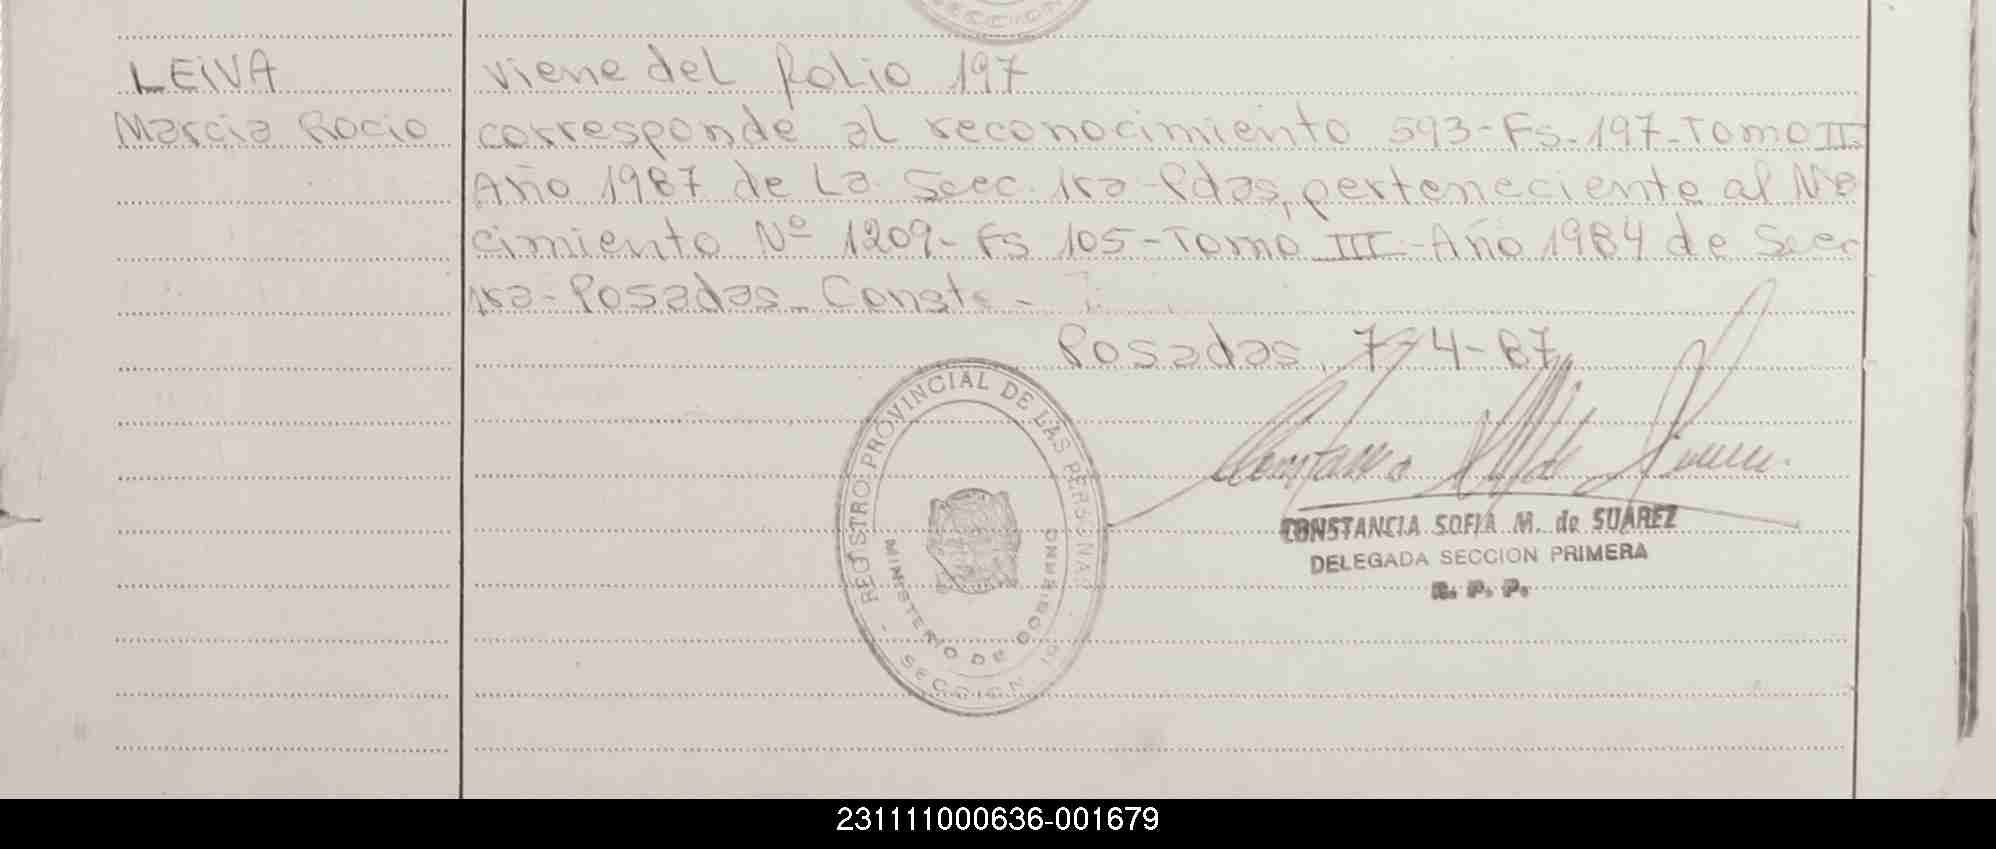 SECCION
LEIVA
Marcia Rocio
viene del folio 197
corresponde al reconocimiento 593-Fs-197-Tomo II
Año 1987 de La Secc. 1ra-Pdas, perteneciente al Na
cimiento Nº 1209-Fs 105-Tomo III-Año 1984 de Secc
1ra-Posadas_Conste-
Posadas, 7-4-87
REGISTRO PROVINCIAL DE LAS PERSONAS
MINISTERIO DE GOBIERNO
SECCION 1a
CONSTANCIA SOFIA M. de SUAREZ
DELEGADA SECCION PRIMERA
R. P. P.
231111000636-001679